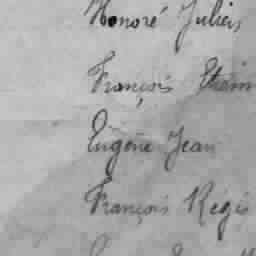 Honoré Julien
François
Eugène Jean
François Régis